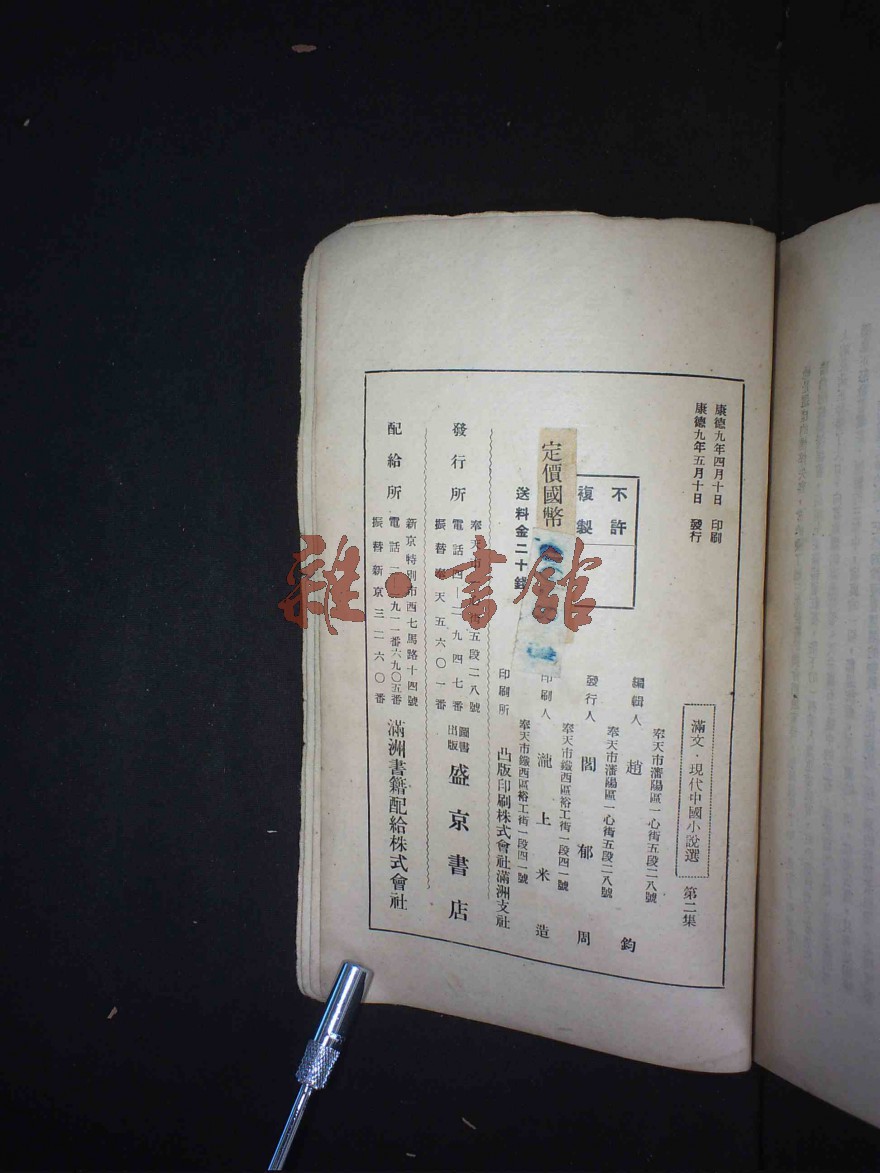 康德九年四月十日 印刷
康德九年五月十日 發行
滿文·現代中國小說選 第二集
不許
複製
定價國幣
送料金二十錢
奉天市瀋陽區一心街五段二八號
編輯人 趙 鈞
奉天市瀋陽區一心街五段二八號
發行人 閻郁周
奉天市鐵西區裕工街一段四一號
印刷人 瀧上米造
奉天市鐵西區裕工街一段四一號
印刷所 凸版印刷株式會社滿洲支社
發行所
奉天市 街五段二八號
電話四—二九四七番
振替奉天五六〇一番
圖書
出版 盛京書店
配給所
新京特別市西七馬路十四號
電話 九一一番六九〇五番
振替新京三二一六〇番
滿洲書籍配給株式會社
雜·書館